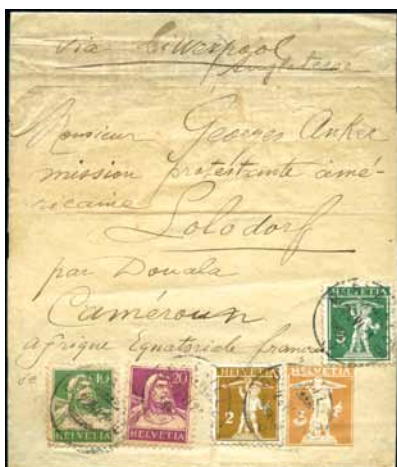 via Liverpool
Angleterre
Monsieur Georges Anker
mission protestante amé-
ricaine
Lolodorf
par Douala
Caméroun
Afrique Equatoriale françai
se
HELVETIA
5
10
HELVETIA
20
HELVETIA
2
HELVETIA
3
HELVETIA